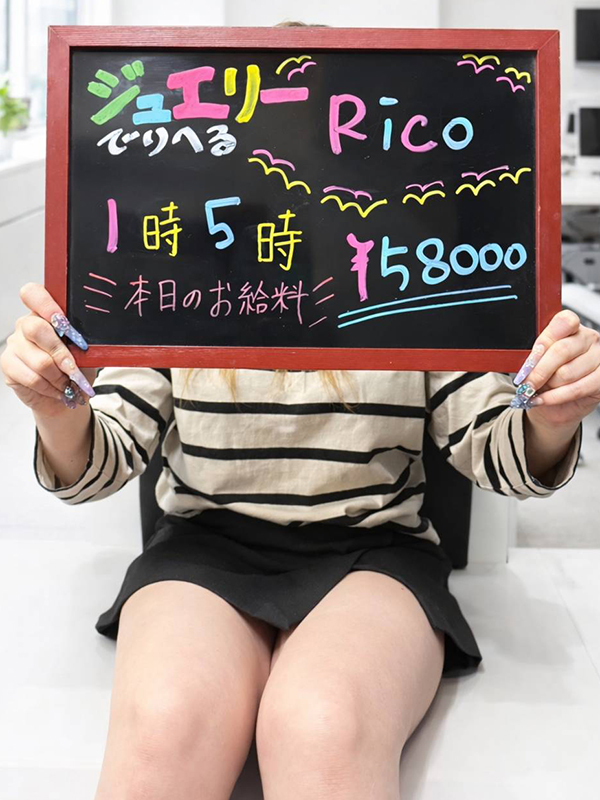 ジュエリー
でりへる
Rico
1時5時
¥58000
本日のお給料